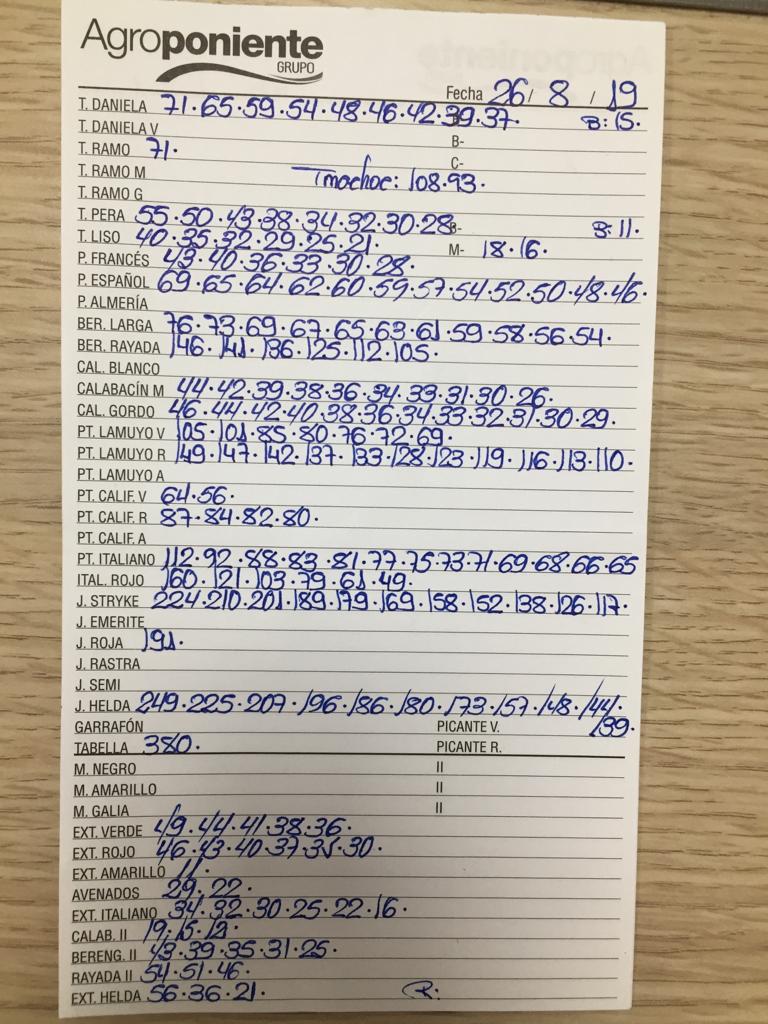 Agroponiente
GRUPO
Fecha 26/ 8 / 19
T. DANIELA 71.65.59.54.48.46.42.39.37. B: 15.
T. DANELA V B-
T. RAMO 71. C-
T. RAMO M Tmochoc: 108.93.
T. RAMO G
T. PERA 55.50.43.38.34.32.30.28 B- B: 11.
T. LISO 40.35.32.29.25.21. M- 18.16.
P. FRANCÉS 43.40.36.33.30.28.
P. ESPAÑOL 69.65.64.62.60.59.57.54.52.50.48.46.
P. ALMERÍA
BER. LARGA 76.73.69.67.65.63.61.59.58.56.54.
BER. RAYADA 146.141.136.125.112.105.
CAL. BLANCO
CALABACÍN M 44.42.39.38.36.34.33.31.30.26.
CAL. GORDO 46.44.42.40.38.36.34.33.32.31.30.29.
PT. LAMUYO V 105.101.85.80.76.72.69.
PT. LAMUYO R 149.147.142.137.133.128.123.119.116.113.110.
PT. LAMUYO A
PT. CALIF. V 64.56.
PT. CALIF. R 87.84.82.80.
PT. CALIF. A
PT. ITALIANO 112.92.88.83.81.77.75.73.71.69.68.66.65
ITAL. ROJO 160.121.103.79.61.49.
J. STRYKE 224.210.201.189.179.169.158.152.138.126.117.
J. EMERITE
J. ROJA 191.
J. RASTRA
J. SEMI
J. HELDA 249.225.207.196.186.180.173.157.148.144.
139.
GARRAFÓN PICANTE V.
TABELLA 380. PICANTE R.
M. NEGRO II
M. AMARILLO II
M. GALIA II
EXT. VERDE 49.44.41.38.36.
EXT. ROJO 46.43.40.37.35.30.
EXT. AMARILLO 11.
AVENADOS 29.22.
EXT. ITALIANO 34.32.30.25.22.16.
CALAB. II 19.15.12.
BERENG. II 43.39.35.31.25.
RAYADA II 54.51.46.
EXT. HELDA 56.36.21. R: